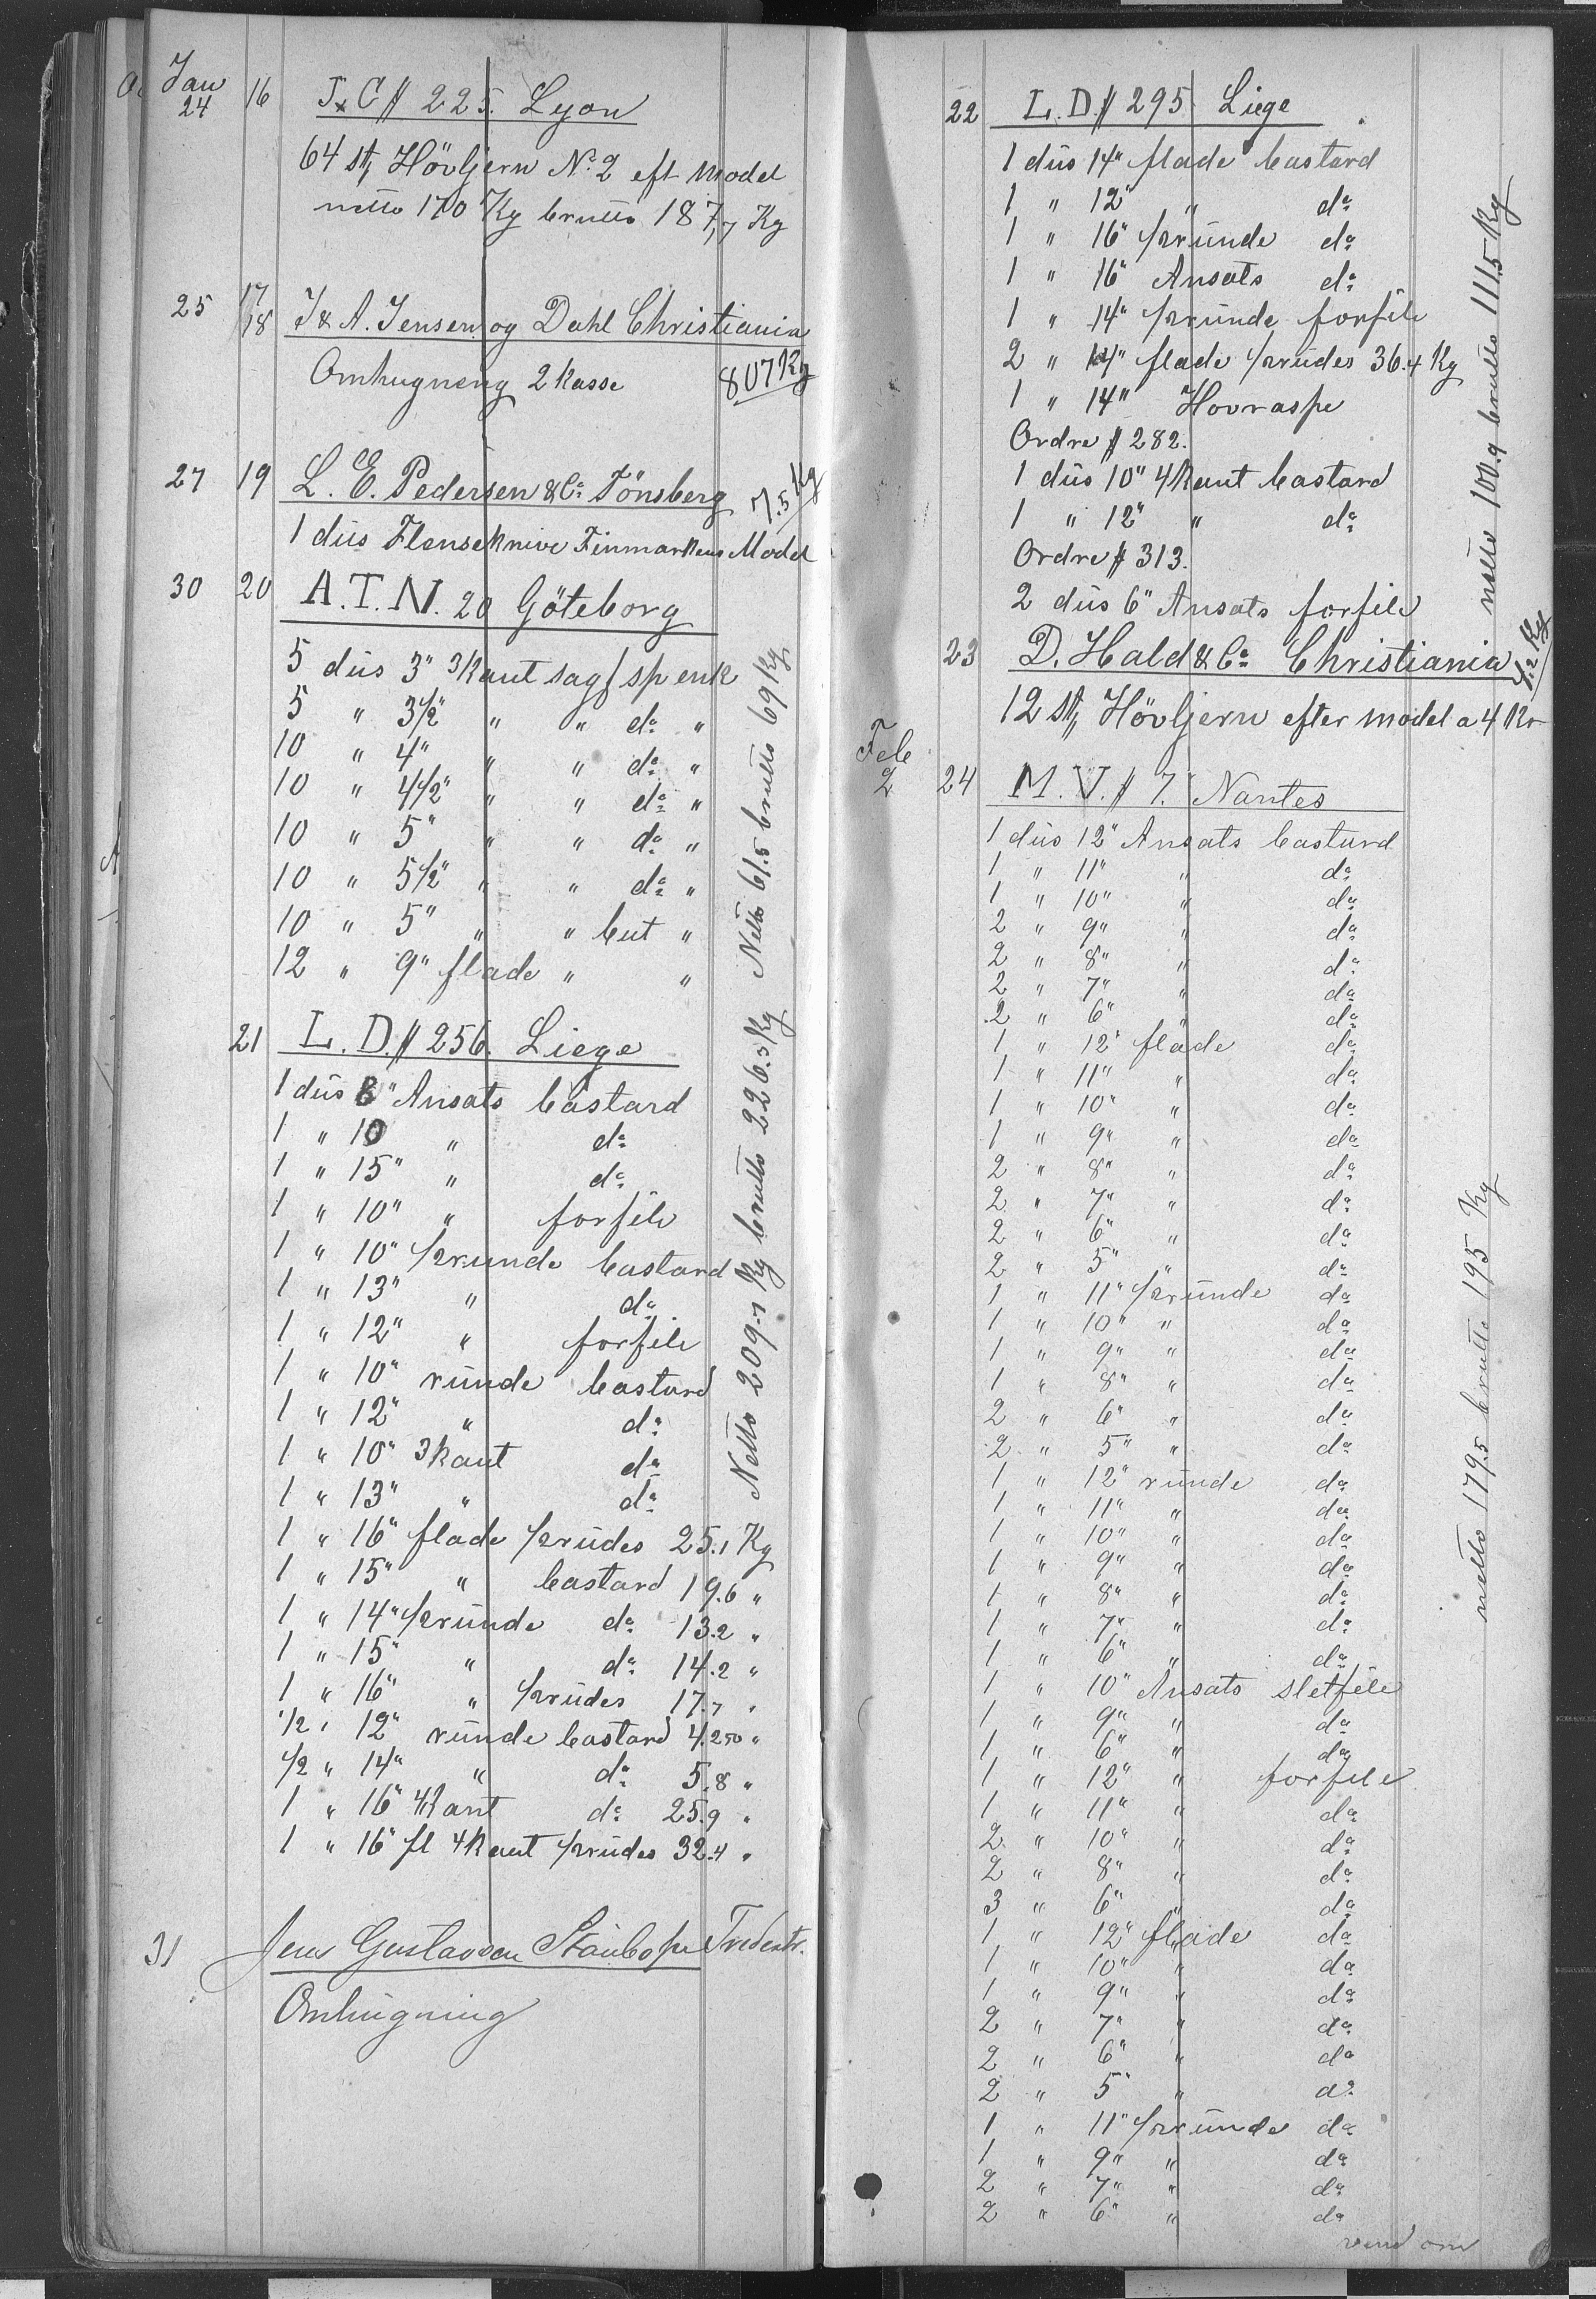 Jan
24 16 J x C # 225. Lyon
64 st, Hövljern No 2 eft model
netto 170 Kg brutto 187,7 Kg
25 17/18 J & A. Jensen og Dahl Christiania
Omhugneng 2 kasse 807 Kg
27 19 L. E. Pedersen & Co Tönsberg 7.5 Kg
1 düs Flenseknive Finmarkens Model
30 20 A. T. N. 20 Göteborg
5 düs 3" 3kant sagf sp enk
5 " 3 1/2" " " do "
10 " 4" " " do "
10 " 4 1/2" " " do "
10 " 5" " " do "
10 " 5 1/2" " " do "
10 " 5" " " but "
12 " 9" flade " "
Netto 61.5 brutto 69 Kg
21 L. D. # 256. Liege
1 düs 6" Ansats bastard
1 " 10 " do
1 " 15" " do
1 " 10" " forfile
1 " 10" 1/2runde bastard
1 " 13" " do
1 " 12" " forfile
1 " 10" runde bastard
1 " 12" " do
1 " 10" 3kant do
1 " 13" " do
1 " 16" flade 1/2rüdes 25.1 Kg
1 " 15" " bastard 19.6 "
1 " 14" 1/2runde do 13.2 "
1 " 15" " do 14.2 "
1 " 16" " 1/2rüdes 17.7 "
1/2 " 12" runde bastard 4.250 "
1/2 " 14" " do 5.8 "
1 " 16" 4kant do 25.9 "
1 " 16" fl 4kant 1/2rüdes 32.4 "
Netto 209.1 Kg brutto 226.5 Kg
31 Jens Gustavsen
Omhugning
22 L. D. # 295 Liege
1 düs 14" flade bastard
1 " 12" " do
1 " 16" 1/2runde do
1 " 16" Ansats do
1 " 14" 1/2runde forfile
2 " 14" flade 1/2rüdes 36.4 Kg
1 " 14" Hovraspe
Ordre # 282.
1 düs 10" 4kant bastard
1 " 12" " do
Ordre # 313.
2 düs 6" Ansats forfile
netto 100.9 brutto 111.5 Kg
23 D. Hald & Co Christiania 4.2 Kg
12 st, Hövljern efter model a 4 Kr
Feb
2 24 M. V. # 7. Nantes
1 düs 12" Ansats bastard
1 " 11" " do
1 " 10" " do
2 " 9" " do
2 " 8" " do
2 " 7" " do
2 " 6" " do
1 " 12" flade do
1 " 11" " do
1 " 10" " do
1 " 9" " do
2 " 8" " do
2 " 7" " do
2 " 6" " do
2 " 5" " do
1 " 11" 1/2runde do
1 " 10" " do
1 " 9" " do
1 " 8" " do
2 " 6" " do
2 " 5" " do
1 " 12" runde do
1 " 11" " do
1 " 10" " do
1 " 9" " do
1 " 8" " do
1 " 7" " do
1 " 6" " do
1 " 10" Ansats sletfile
1 " 9" " do
1 " 6" " do
1 " 12" " forfile
1 " 11" " do
2 " 10" " do
2 " 8" " do
3 " 6" " do
1 " 12" flade do
1 " 10" " do
1 " 9" " do
2 " 7" " do
2 " 6" " do
2 " 5" " do
1 " 11" 1/2runde do
1 " 9" " do
2 " 7" " do
2 " 6" " do
netto 179.5 brutto 195 Kg
vend om